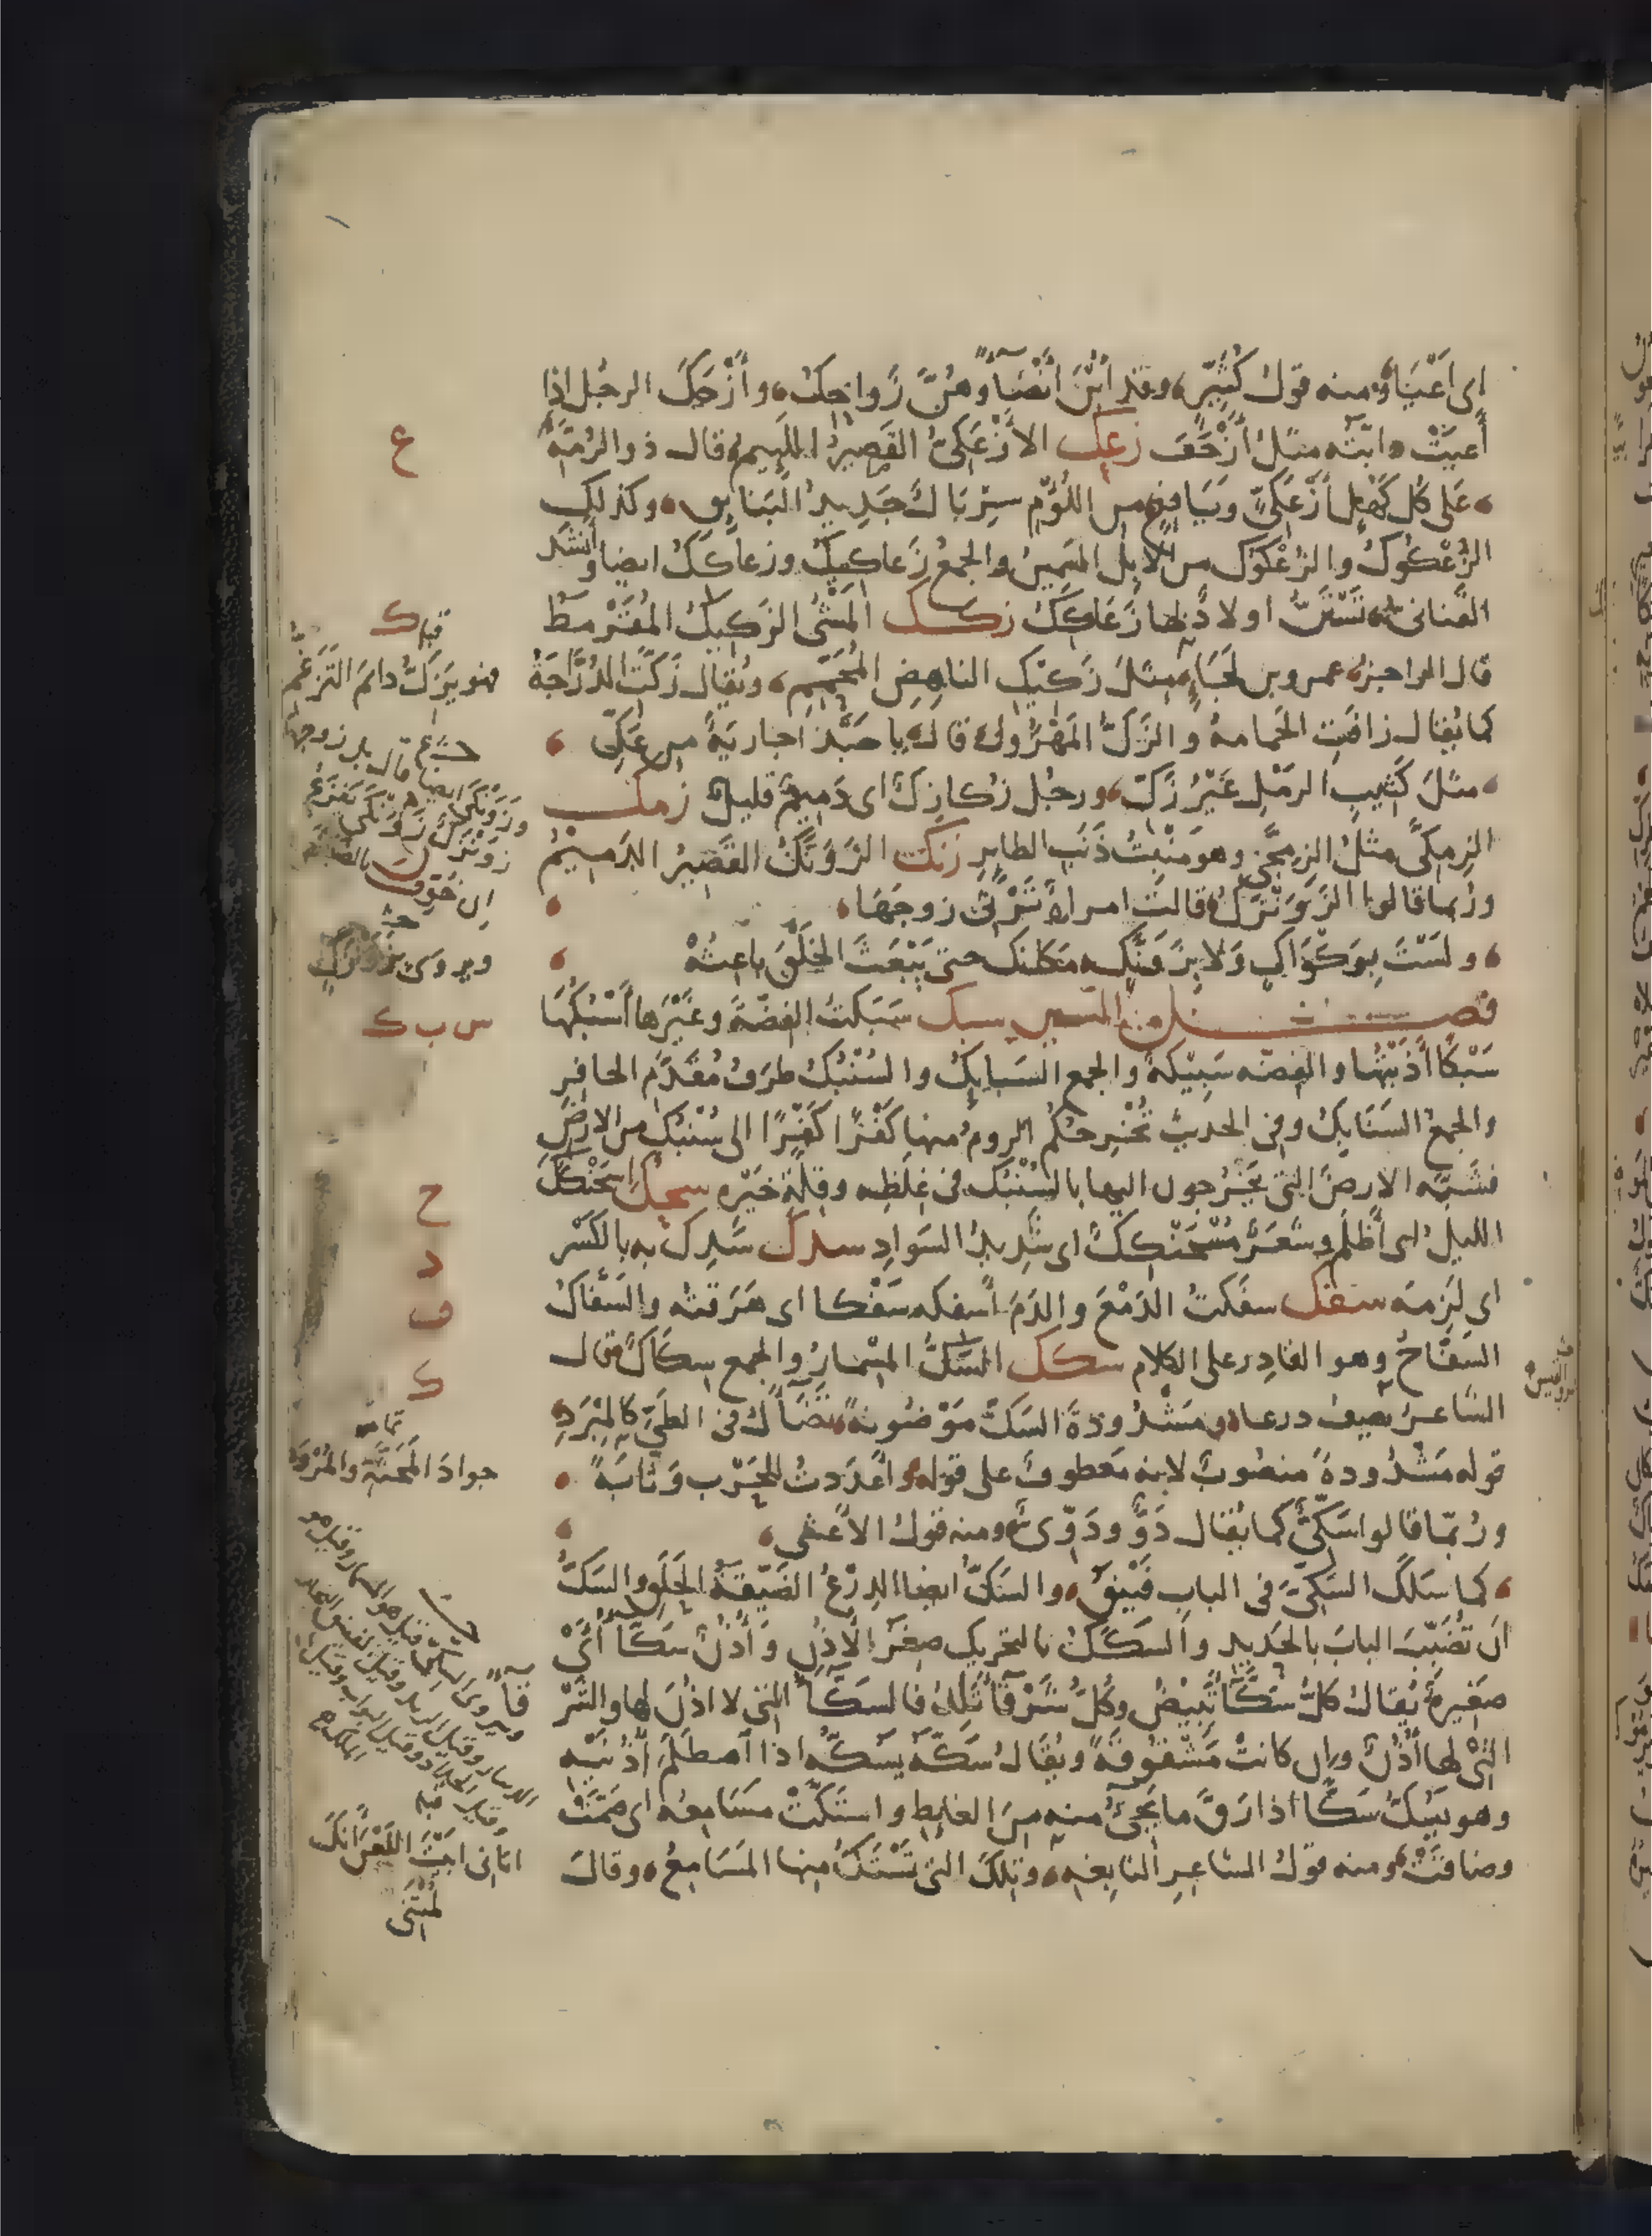 اى اَعْيَا ومنه قولُ كُثَيِّر وقد اُبْنَ اَنْضَاءً وهُنَّ زَواحِكُ وأَزْحَكَ الرجُل إذا
أَعيَتْ دابّته مثلُ أَزْحَفَ زعك الأَزْعَكِىُّ القَصِيرُ اللَّئِيم قال ذو الرُّمّة
عَلى كُل كَهْلٍ أَزْعَكِىٍّ وَيَافِعٍ من اللُّؤْمِ سِرْبَالٌ جَدِيدُ البَنَايِقِ وكذلك
الزُّعْكُوكُ والزُّعْكُوك من الاِبِل السَمِينُ والجمعُ زَعاكِيكُ وزعاكِكُ ايضا وأنشد
القنانى تَسْتَنُّ اولادٌ لها زَعَاكِكُ زكك المَشْىُ الزَكِيكُ المُقَرْمَطُ
قال الراجز عمرو بن لَجَاءٍ مثلَ زَكِيْكِ الناهِضِ المُحَمِّمِ ويُقال زَكَّتِ الدُرَّاجَةُ
كما يُقال زافَتِ الحَمامةُ والزَكُّ المَهْزُولُ قال يا حَبَّذا جاريَةٌ من عَكِّ
مثلَ كَثِيبِ الرمْلِ غَيْرُ زَكِّ ورجُل زُكازِكٌ اى دَمِيمٌ قليلٌ زمك
الزِمِكَّى مثلُ الزِمِجَّى وهو مَنْبِتُ ذَنَبِ الطاير زنك الزَوَنَّكُ القَصِيرُ الدَمِيمُ
ورُبما قالوا الزَوَنْزَكُ قالت امراةٌ تَرْثى زوجَهَا
ولَسْتَ بِوَكْوَاكٍ وَلا بِزَوَنَّكٍ مَكانَكَ حتى يَبْعَثَ الخَلْقَ باعِثُهْ
فصل من السين سبك سَبَكتُ الفضّةَ وغَيْرَها أَسْبُكُهَا
سَبْكًا أَذَبْتُهَا والفِضّه سَبِيْكَةٌ والجمع السَبايِكُ والسُنْبُكُ طرَفُ مُقَدَّمِ الحافِر
والجمعُ السَنَابِكُ وفى الحديث تُخْرِجكُم الروم منها كَفْرًا كَفْرًا الى سُنْبُكٍ من الارض
فشَبَّه الارضَ التى يَخْرجون اليها بالسُنْبُك فى غِلَظِه وقِلَّةِ خَيْرِهِ سحك اسْحَنْكَكَ
الليلُ اى أَظْلَم وشَعَرٌ مُسْحَنْكِكٌ اى شَدِيدُ السَوادِ سدك سَدِكَ به بالكَسْر
اى لَزِمَه سفك سفَكتُ الدَمْعَ والدَمَ أَسفكه سَفْكا اى هَرَقتُه والسَفَّاكُ
السَفَّاحُ وهو القادِر على الكلام سكك السَّكُّ المِسْمارُ والجمع سِكَاكٌ قال
الشاعرُ يصِفُ درعا ومَشْدُودةَ السَكِّ مَوْضُونةً تَضَاءَلُ فى الطَيِّ كالمِبْرَدِ
قوله مَشْدُودةَ منصُوبٌ لانه مَعطوفٌ على قوله وأعْدَدتُ للحَرْب وَثّابَةً
ورُبّما قالوا سَكِّىٌّ كما يُقال دَوٌّ ودَوِّىٌّ ومنه قولُ الأعْشى
كما سَلَكَ السَكِّىَّ فى الباب فَيْتَقُ والسَكُّ ايضا الدِرْعُ الضَيّقةُ الحَلَقِ والسَكُّ
أن تُضَبِّبَ البابَ بالحَدِيد والسَكَكُ بالتحريك صِغَرُ الاُذُنِ وأُذُنٌ سَكَّاءُ أَىْ
صَغِيرةٌ يُقالُ كلُّ سَكَّاءَ تَبِيْضُ وكُلُّ شَرْقَاءَ تَلِدُ فالسَكَّاءُ التى لا اذُنَ لها والشَرْقاءُ
التى لها أُذُنٌ وإن كانتْ مَشْقُوقَةً ويُقَالُ سَكَّهُ يَسُكُّهُ اذا اصطَلَمَ أُذُنَيْه
وهو يَسُكُّ سَكًّا اذا رَقَّ ما يَجِىْءُ منه مِنَ الغائِط واسْتَكَّتْ مسَامِعُه اى صَمَّتْ
وضاقَتْ ومنه قولُ الشاعِرِ النابِغهِ وتِلكَ التى تَسْتَكُّ مِنها المَسَامِعُ وقالَ
ع
قبله ك
فهو يَزِكُّ دايمَ التَزَغُّمِ
ويروى بزَوَنْزَكٍ
س ب ك
ح
د
ف
ك
تمامه
جوادَ المَحَثَّةِ والمُرْوَدِ
قبله
اتانى ابَيْتَ اللَعْنَ أَنَّكَ
لُمْتَنى